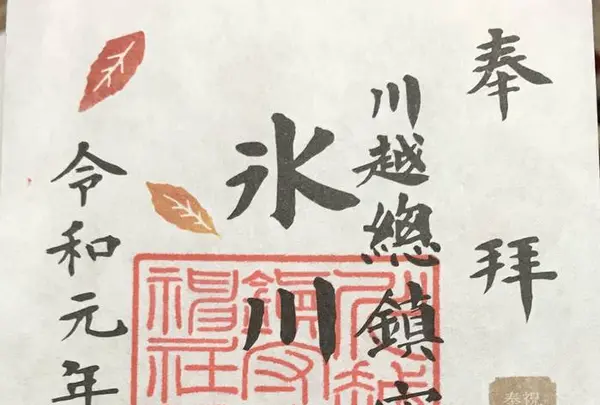 奉拝
川越總鎮
氷川
令和元年
奉祝